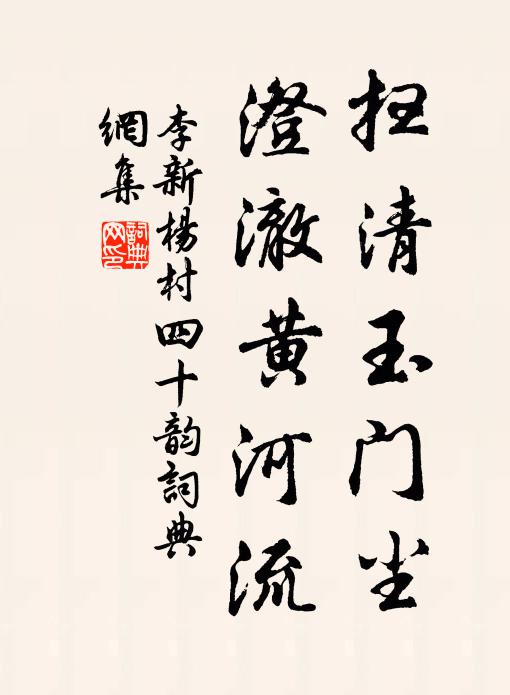 扫清玉门尘
澄澈黄河流
李新杨村四十韵詞典
網集
詞典
网印